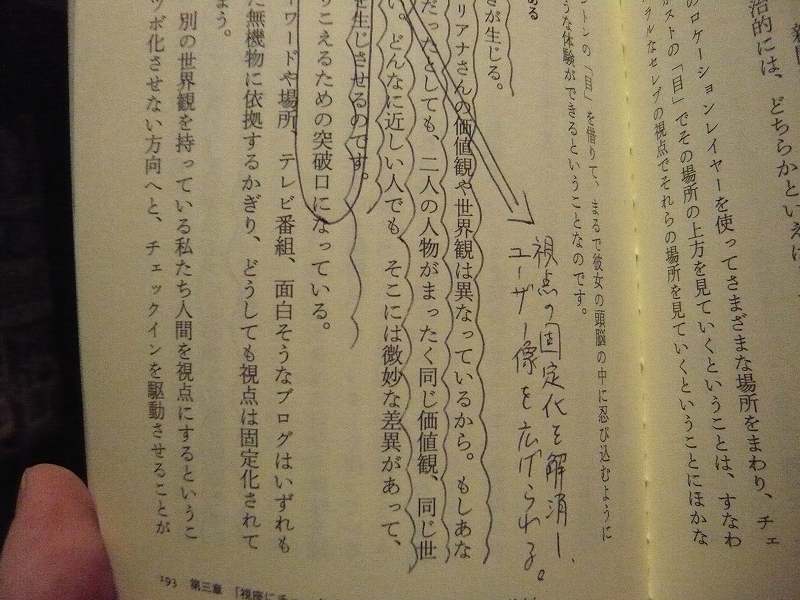 治的には、どちらかといえば
のロケーションレイヤーを使ってさまざまな場所をまわり、チェ
ストの「目」でその場所の上方を見ていくということは、すなわ
ラルなセレブの視点でそれらの場所を見ていくということにほかな
ントンの「目」を借りて、まるで彼女の頭脳の中に忍び込むように
うな体験ができるということなのです。
ある
さが生じる。
リアナさんの価値観や世界観は異なっているから。もしあな
だったとしても、二人の人物がまったく同じ価値観、同じ世
い。どんなに近しい人でも、そこには微妙な差異があって、
を生じさせるのです。
りこえるための突破口になっている。
ーワードや場所、テレビ番組、面白そうなブログはいずれも
た無機物に依拠するかぎり、どうしても視点は固定化されて
よう。
別の世界観を持っている私たち人間を視点にするというこ
ツボ化させない方向へと、チェックインを駆動させることが
視点の固定化を解消し、
ユーザー像を広げられる。
193 第三章 「視座にチ